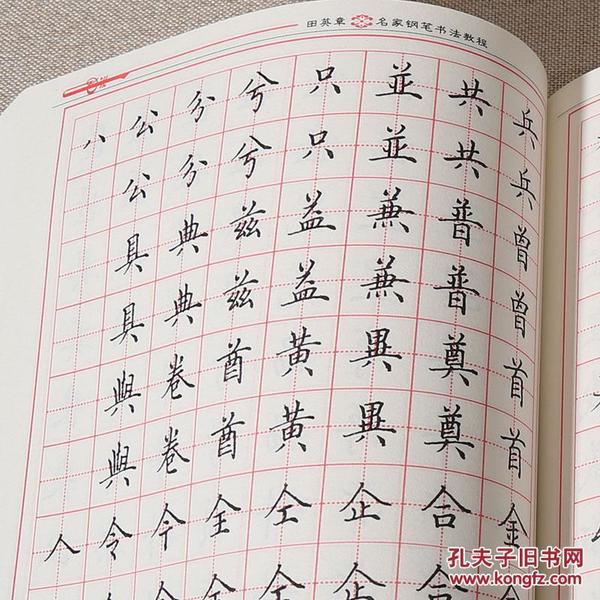 田英章 名家钢笔书法教程
八 公 分 兮 只 並 共 兵
公 分 兮 只 並 共 兵
具 典 兹 益 兼 普 曾
具 典 兹 益 兼 普 曾
與 卷 酋 黄 異 奠 首
與 卷 酋 黄 異 奠 首
人 令 今 全 仝 企 合 金
孔夫子旧书网
www.kongfz.com